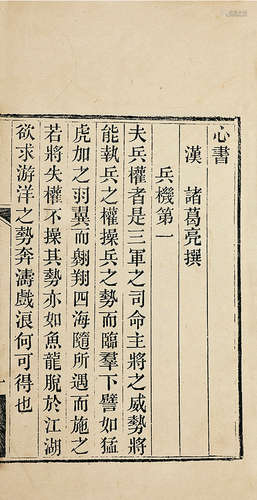 心書
漢 諸葛亮撰
兵機第一
夫兵權者是三軍之司命主將之威勢將
能執兵之權操兵之勢而臨羣下譬如猛
虎加之羽翼而翱翔四海隨所遇而施之
若將失權不操其勢亦如魚龍脫於江湖
欲求游洋之勢奔濤戲浪何可得也